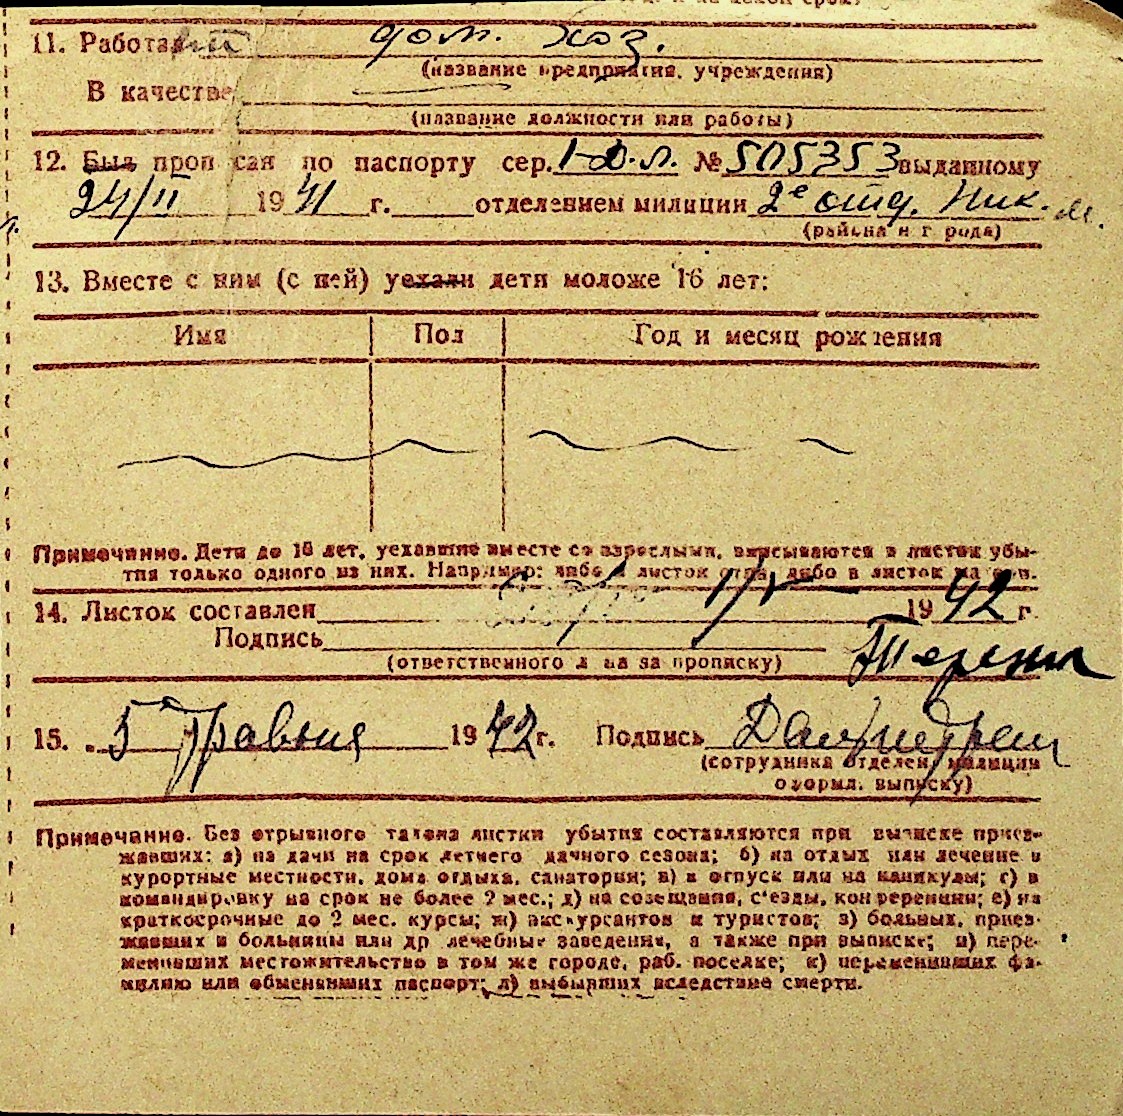 11. Работает дом. хоз.
(название предприятия, учреждения)
В качестве
(название должности или работы)
12. Был проп сан по паспорту сер. 1-Д.Л. № 505353 выданному
24/II 1941 г. отделением милиции 2е отд. Ник.
(района и г рода)
13. Вместе с ним (с ней) уехали дети моложе 16 лет:
Имя Пол Год и месяц рождения
Примечание. Дети до 16 лет, уехавшие вместе со взрослыми, вписываются в листок убы-
тия только одного из них. Например: либо в листок отца, либо в листок матери.
14. Листок составлен 1/V 1942 г.
Подпись
(ответственного л ца за прописку)
15. 5 Травня 1942 г. Подпись
(сотрудника отделен. милиции
оформл. выписку)
Примечание. Без отрывного талона листки убытия составляются при выписке приез-
жавших: а) на дачи на срок летнего дачного сезона; б) на отдых или лечение в
курортные местности, дома отдыха, санатории; в) в отпуск или на каникулы; г) в
командировку на срок не более 2 мес.; д) на совещания, с'езды, конференции; е) на
краткосрочные до 2 мес. курсы; ж) экскурсантов и туристов; з) больных, приез-
жавших в больницы или др лечебные заведения, а также при выписке; и) пере-
менивших местожительство в том же городе, раб. поселке; к) переменивших фа-
милию или обменявших паспорт; л) выбывших вследствие смерти.